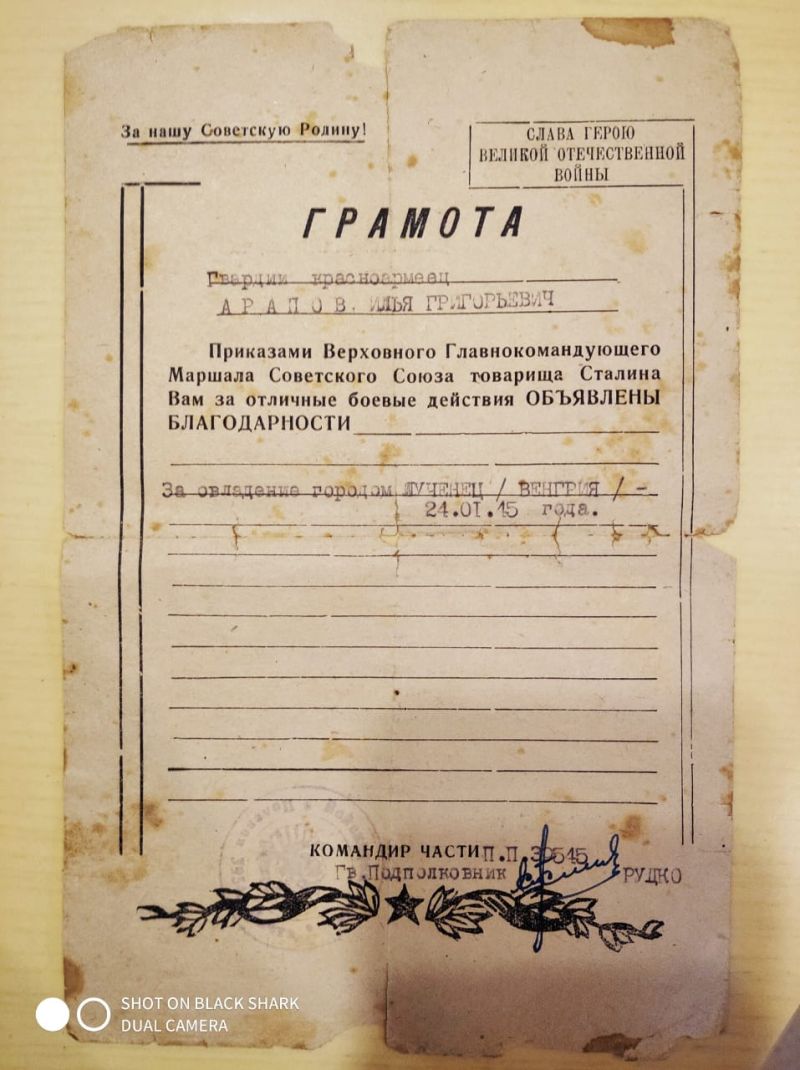 За нашу Советскую Родину!
СЛАВА ГЕРОЮ
ВЕЛИКОЙ ОТЕЧЕСТВЕННОЙ
ВОЙНЫ
ГРАМОТА
Гвардии красноармеец
АРАПОВ. ИЛЬЯ ГРИГОРЬЕВИЧ
Приказами Верховного Главнокомандующего
Маршала Советского Союза товарища Сталина
Вам за отличные боевые действия ОБЪЯВЛЕНЫ
БЛАГОДАРНОСТИ
За овладение городом ЛУЧЕНЕЦ / ВЕНГРИЯ / -
24.01.45 года.
КОМАНДИР ЧАСТИ П.П.
Гв.Подполковник РУДКО
SHOT ON BLACK SHARK
DUAL CAMERA